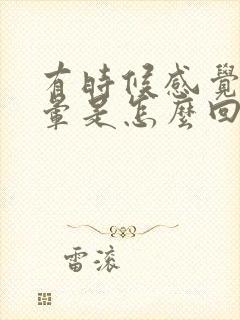 有時候感覺
暈是怎麼回
雷滾